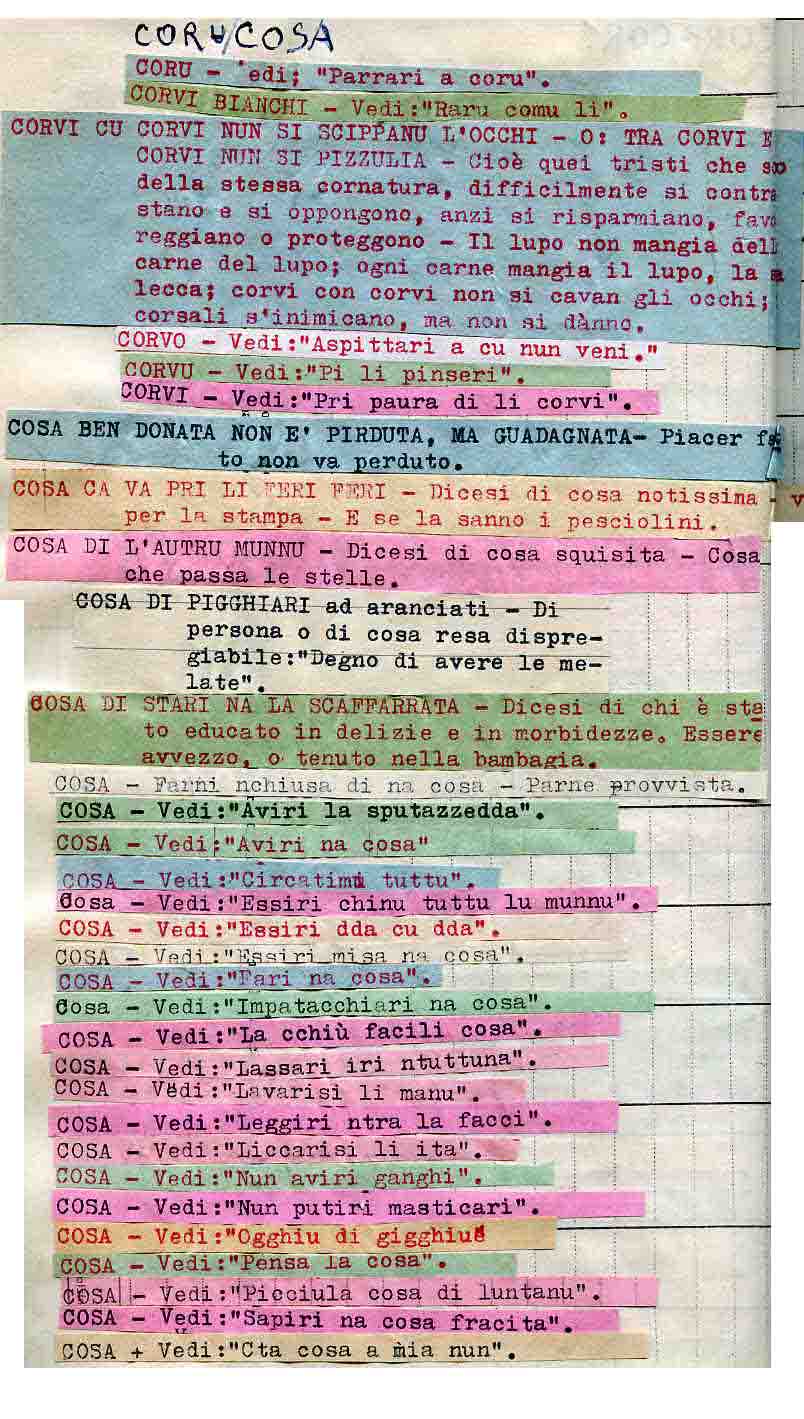 CORU/COSA
CORU - edi; "Parrari a coru".
CORVI BIANCHI - Vedi:"Raru comu li".
CORVI CU CORVI NUN SI SCIPPANU L'OCCHI - O: TRA CORVI E
CORVI NUN SI PIZZULIA - Cioè quei tristi che so
della stessa cornatura, difficilmente si contra
stano e si oppongono, anzi si risparmiano, favo
reggiano o proteggono - Il lupo non mangia dell
carne del lupo; ogni carne mangia il lupo, la
lecca; corvi con corvi non si cavan gli occhi;
corsali s'inimicano, ma non si dànno.
CORVO - Vedi:"Aspittari a cu nun veni."
CORVU - Vedi:"Pi li pinseri".
CORVI - Vedi:"Pri paura di li corvi".
COSA BEN DONATA NON E' PIRDUTA, MA GUADAGNATA- Piacer fa
to non va perduto.
COSA CA VA PRI LI FERI FERI - Dicesi di cosa notissina - v
per la stampa - E se la sanno i pesciolini.
COSA DI L'AUTRU MUNNU - Dicesi di cosa squisita - Cosa
che passa le stelle.
COSA DI PIGGHIARI ad aranciati - Di
persona o di cosa resa dispre-
giabile:"Degno di avere le me-
late".
COSA DI STARI NA LA SCAFFARRATA - Dicesi di chi è sta
to educato in delizie e in morbidezze. Essere
avvezzo, o tenuto nella bambagia.
COSA - Farni nchiusa di na cosa - Farne provvista.
COSA - Vedi:"Aviri la sputazzedda".
COSA - Vedi:"Aviri na cosa"
COSA - Vedi:"Circatimi tuttu".
Cosa - Vedi:"Essiri chinu tuttu lu munnu".
COSA - Vedi:"Essiri dda cu dda".
COSA - Vedi:"Essiri misa na cosa".
COSA - Vedi:"Fari na cosa".
Cosa - Vedi:"Impatacchiari na cosa".
COSA - Vedi:"La cchiù facili cosa".
COSA - Vedi:"Lassari iri ntuttuna".
COSA - Vedi:"Lavarisi li manu".
COSA - Vedi:"Leggiri ntra la facci".
COSA - Vedi:"Liccarisi li ita".
COSA - Vedi:"Nun aviri ganghi".
COSA - Vedi:"Nun putiri masticari".
COSA - Vedi:"Ogghiu di gigghiu"
COSA - Vedi:"Pensa la cosa".
COSA - Vedi:"Picciula cosa di luntanu".
COSA - Vedi:"Sapiri na cosa fracita".
COSA + Vedi:"Cta cosa a mia nun".